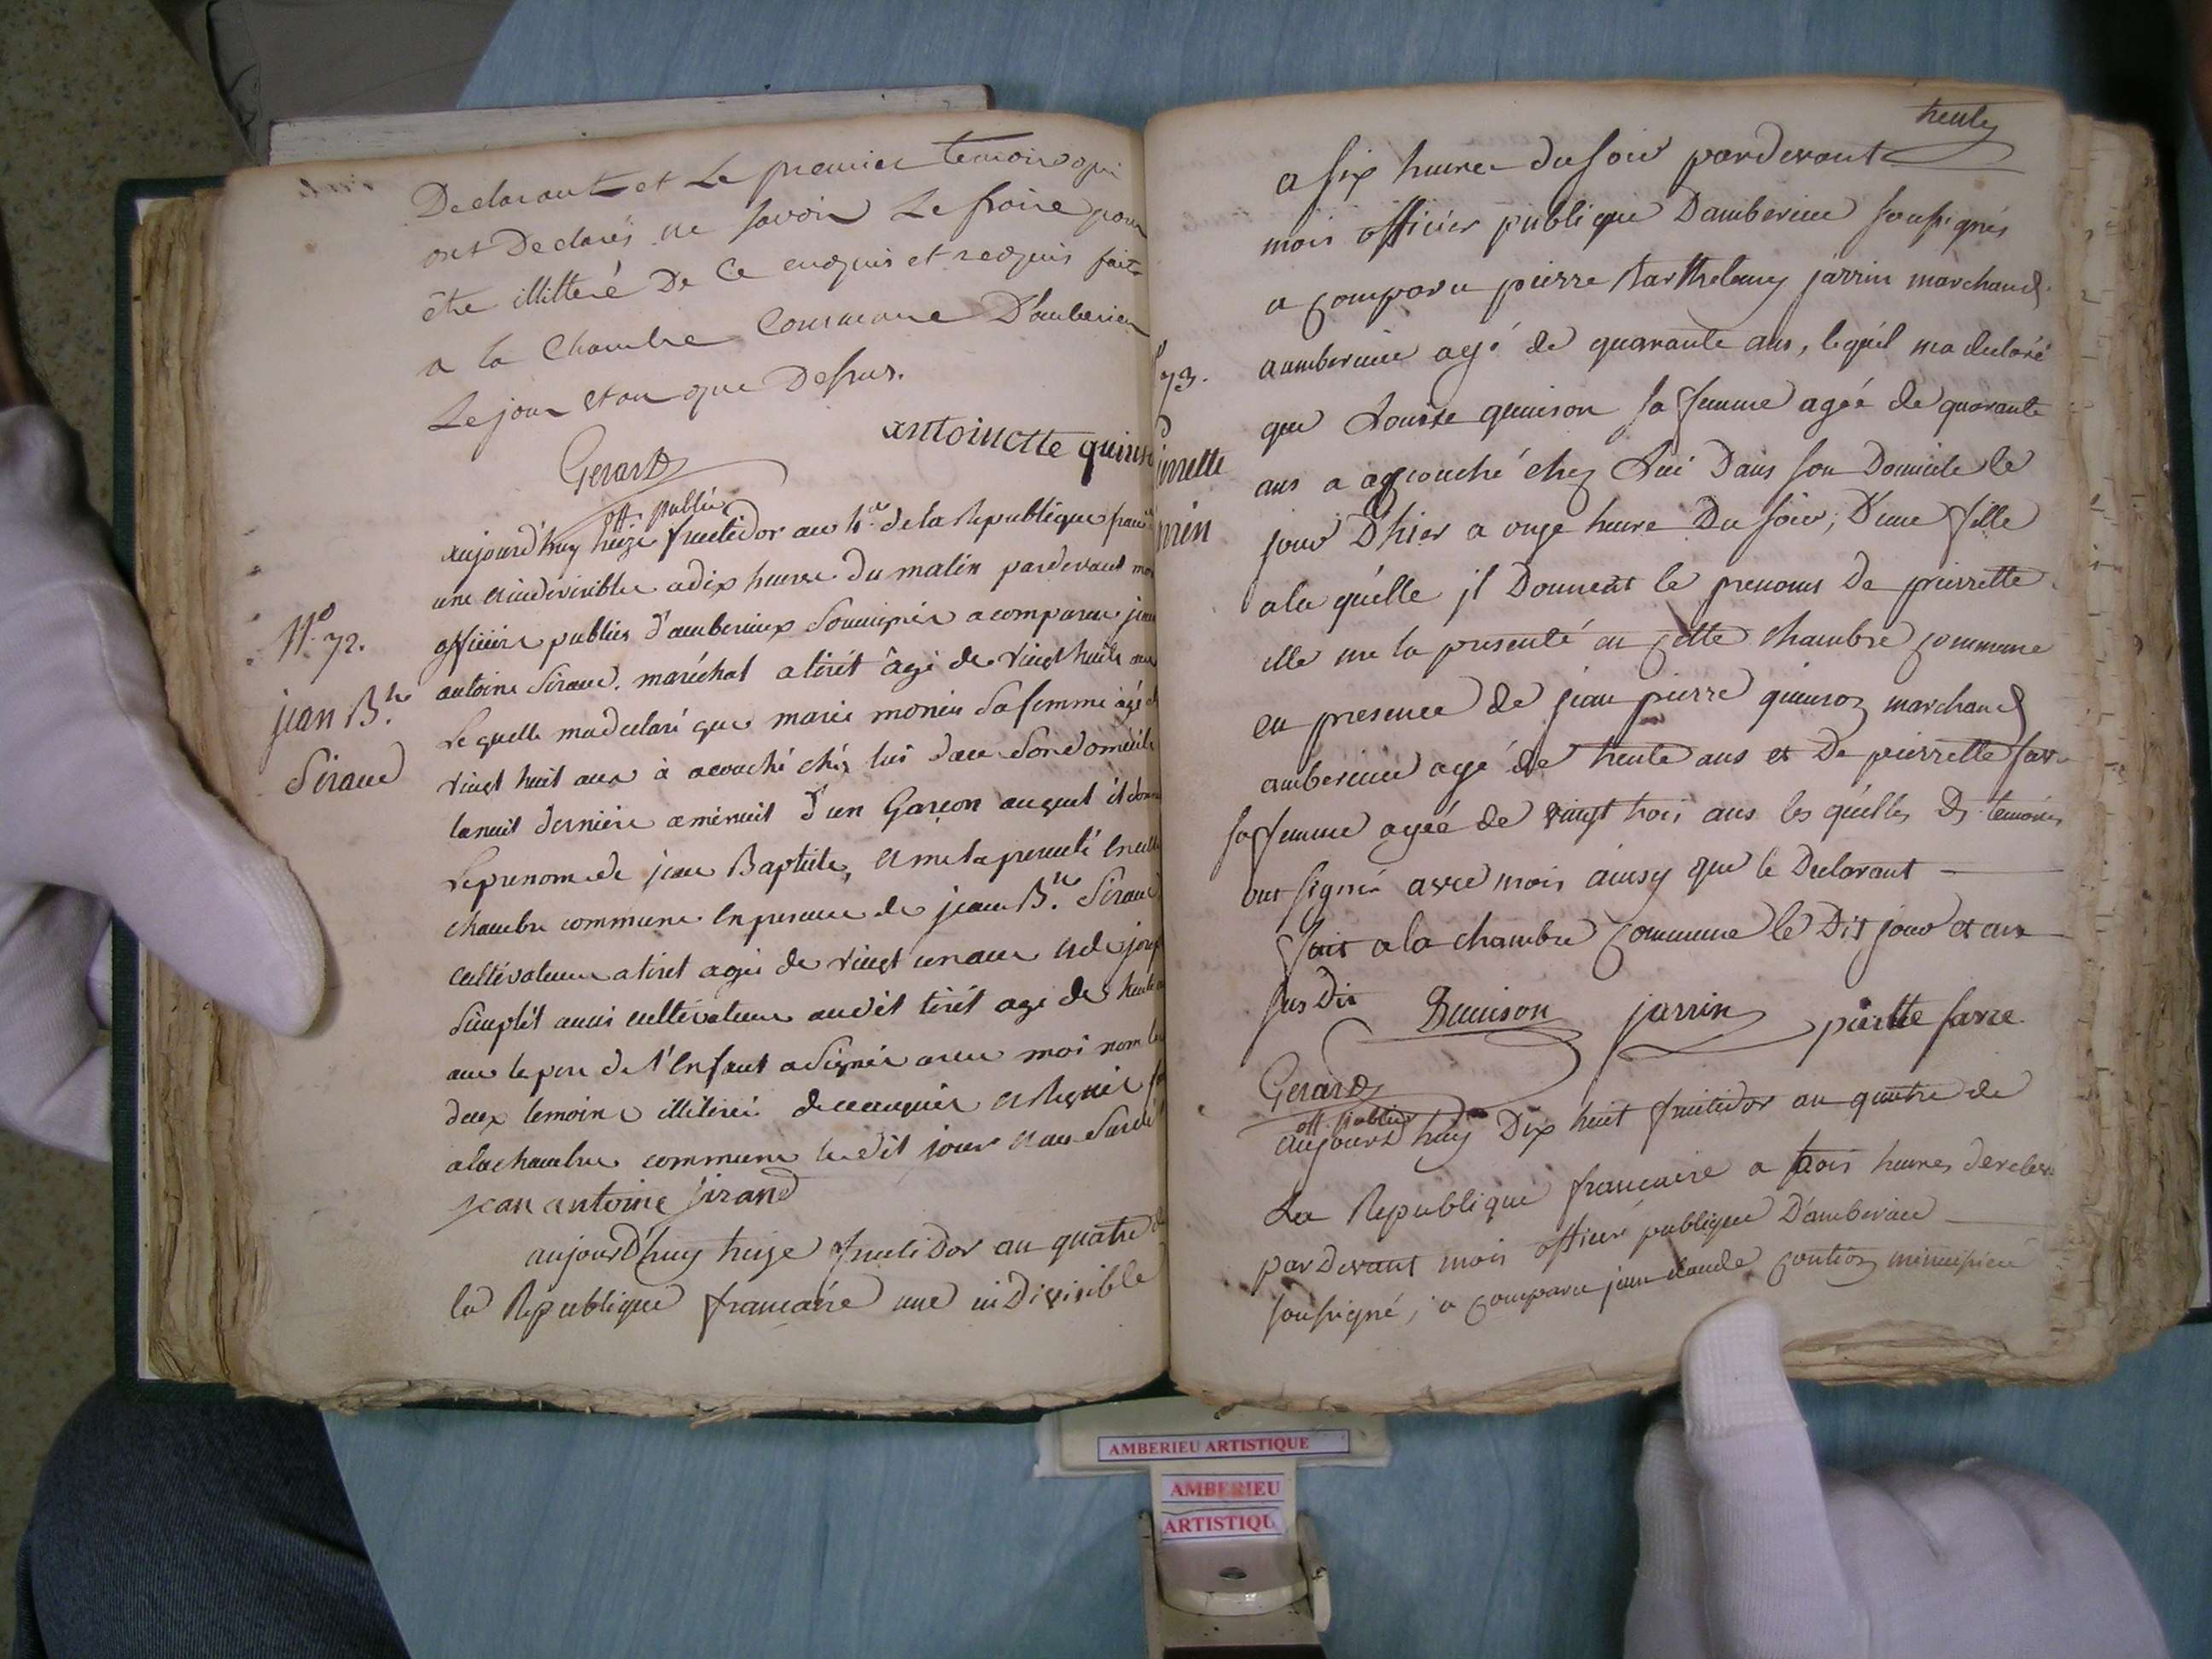 Declarant et Le premier temoin qui
ont Declarés ne savoir Le fraire pour
être illitteré De Ce enquis et requis fait
a la Chambre Commune D'amberieu
Le jour et an que Dessus.
antoinette quins
Gerard
off. public
aujourd'huy treize fructidor an 4.e de la Republique franc
une et indivisible a dix heures du matin pardevant moi
officier publics d'amberieux soussignés a comparu jean
N.o 72.
jean B.te
Siraud
antoine Siraud. maréchal a tiret âgé de vingt huits ans
Lequelle ma declaré que marie monin sa femme agé d
vingt huit ans à acouché chéz lui dans son domicile
la nuit dernière a minuit d'un Garçon auquel il donn
Le prenom de jean Baptiste, et me la presenté en cette
chambre commune en presence de jean B.te Siraud
cultivateur a tiret agé de vingt un ans et de josep
simplét aussi cultivateur audit tirét agé de trente
ans le pere de l'enfant a signés avec moi non les
deux temoins illiterés de ce enquis et Requis f
a la chambre commune le dit jour et an susdi
jean antoine sirand
aujourd'huy treize fructidor an quatre d
la Republique francaise une indivisible
trente
a six heures du soir pardevant
mois officier publique D'amberieu soussignés
a comparu pierre barthelemy jarrin marchand
73.
amberieu agé de quarante ans, lequél ma declaré
que Louise quinson sa femme agée de quarante
rrette
ans a accouché chez Lui Dans son Domicile le
rrin
jour D'hier a onze heure Du soir, D'une fille
a la quélle il Donnent le prenoms De pierrette
elle me la presenté en cette chambre commune
en presence de jean pierre quinson marchand
amberieu agé de trente ans et De pierrette farre
sa femme agée de vingt trois ans les quélles Ds temoins
ont signés avec mois ainsy que le Declarant
fait a la chambre Commune le Dit jour et an
sus Dit
Quinson jarrin pierette farre
Gerard
off. public
aujourd'huy Dix huit fructidor an quatre de
La Republique francaise a trois heures de relevé
pardevant mois officier publique D'amberieu
soussigné, a comparu jean claude
AMBERIEU ARTISTIQUE
AMBERIEU
ARTISTIQU